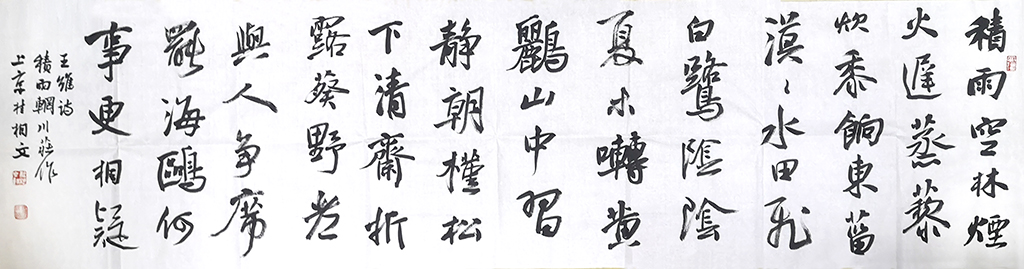 積雨空林煙
火遲蒸藜
炊黍餉東菑
漠〻水田飛
白鷺陰陰
夏木囀黄
鸝山中習
静朝槿松
下清齋折
露葵野老
與人争席
罷海鷗何
事更相疑
王維詩
積雨輞川莊作
上京桂相文